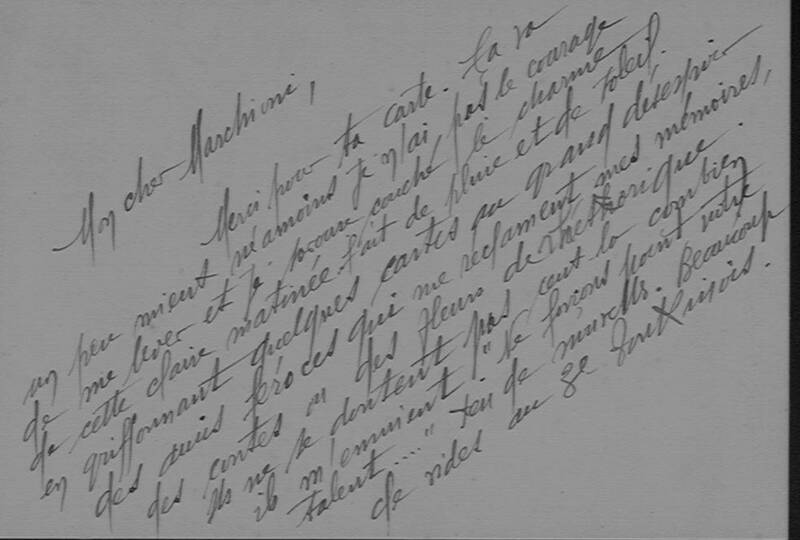 Mon cher Marchioni,
Merci pour ta carte. Ça va
un peu mieux néamoins je n'ai pas le courage
de me lever et je savoure couché, le charme
de cette claire matinée fait de pluie et de soleil.
en griffonnant quelques cartes au grand désespoir
des amis féroces qui me réclament mes mémoires,
des contes ou des fleurs de rhéthorique.
Ils ne se doutent pas cent la combien
ils m'ennuient. "Ne forçons point notre
talent....." Peu de nouvelles. Beaucoup
de rides au 8e